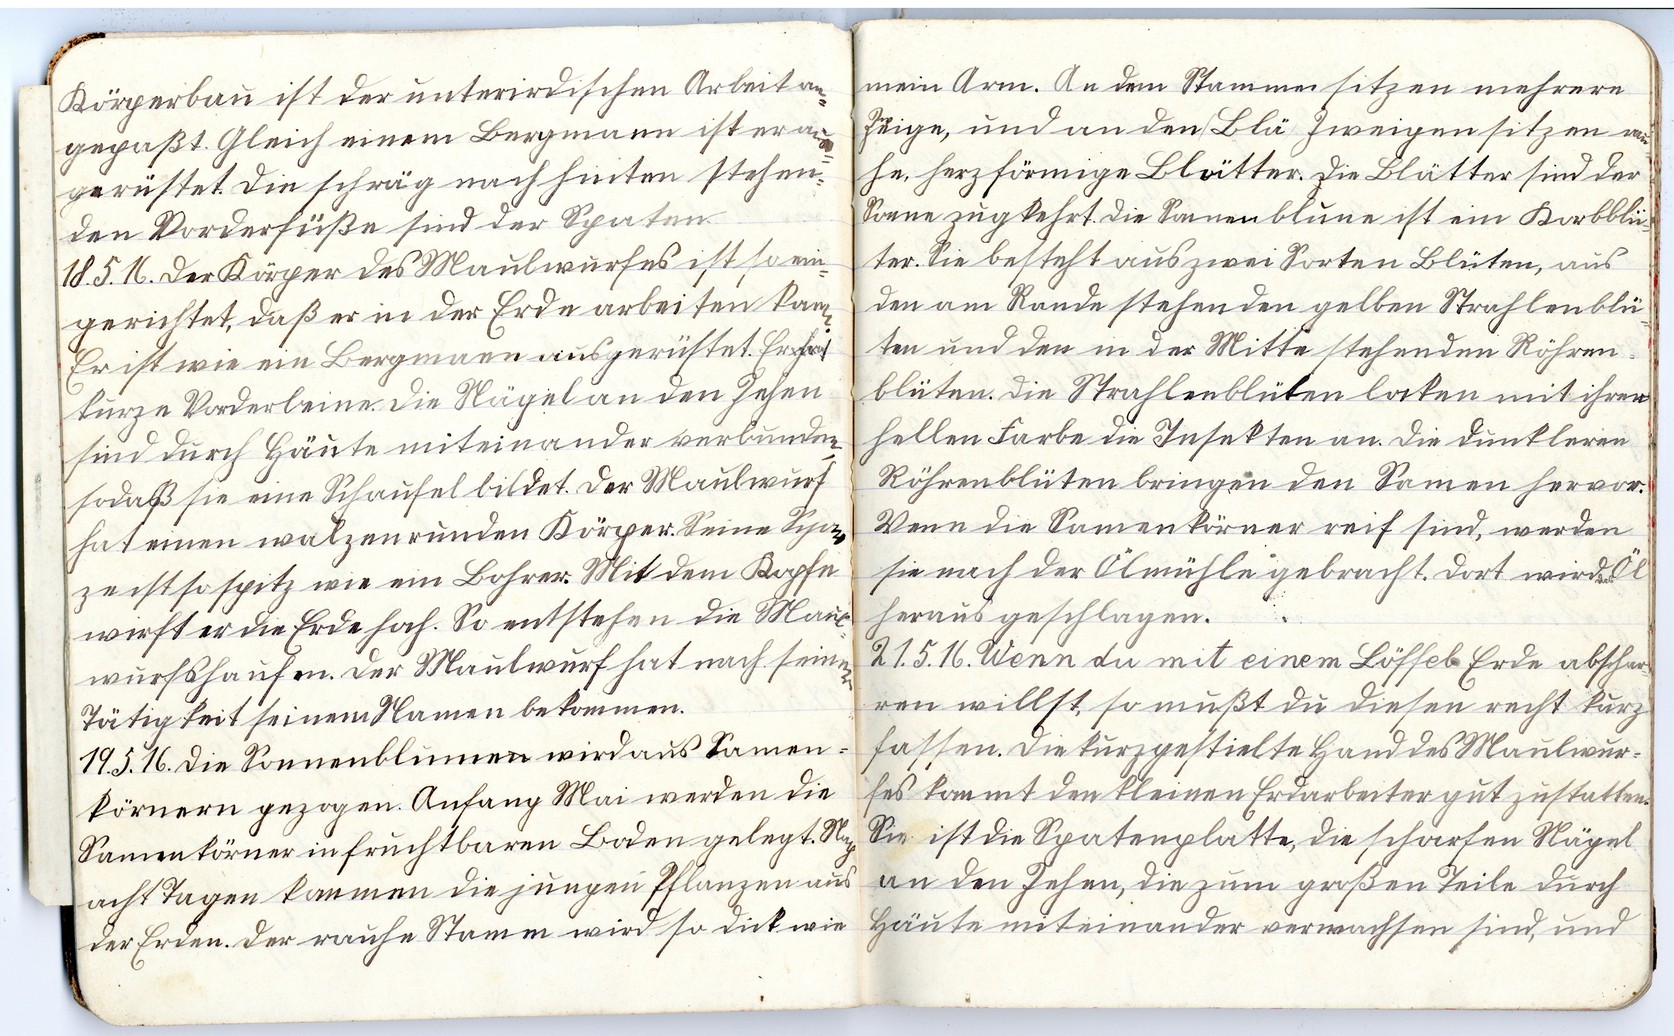 Körperbau ist der unterirdischen Arbeit an=
gepaßt. Gleich einem Bergmann ist er aus=
gerüstet. Die schräg nach hinten stehen=
den Vorderfüße sind der Spaten.
18.5.16. Der Körper des Maulwurfes ist so ein=
gerichtet, daß er in der Erde arbeiten kann.
Er ist wie ein Bergmann ausgerüstet. Er hat
kurze Vorderbeine. Die Nägel an den Zehen
sind durch Häute miteinander verbunden,
sodaß sie eine Schaufel bildet. Der Maulwurf
hat einen walzenrunden Körper. Seine Schnau
ze ist so spitz wie ein Bohrer. Mit dem Kopfe
wirft er die Erde hoch. So entstehen die Maul=
wurfshaufen. Der Maulwurf hat nach seiner
Tätigkeit seinem Namen bekommen.
19.5.16. Die Sonnenblumen wird aus Samen=
körnern gezogen. Anfang Mai werden die
Samenkörner in fruchtbaren Boden gelegt. Nach
acht Tagen kommen die jungen Pflanzen aus
der Erden. Der rauhe Stamm wird so dick wie
mein Arm. An dem Stamme sitzen mehrere
Zweige, und an den Blä Zweigen sitzen rau=
he, herzförmige Blätter. Die Blätter sind der
Sonne zugkehrt. Die Sonnenblume ist ein Korbblü=
ter. Sie besteht aus zwei Sorten Blüten, aus
den am Rande stehenden gelben Strahlenblü=
ten und den in der Mitte stehenden Röhren=
blüten. Die Strahlenblüten locken mit ihren
hellen Farbe die Insekten an. Die dunkleren
Röhrenblüten bringen den Samen hervor.
Wenn die Samenkörner reif sind, werden
sie nach der Ölmühle gebracht. Dort wird das Öl
heraus geschlagen.
21.5.16. Wenn du mit einem Löffel Erde abschar=
ren willst, so mußt du diesen recht kurz
fassen. Die kurzgestielte Hand des Maulwur=
fes kommt den kleinen Erdarbeiter gut zustatten.
Sie ist die Spatenplatte, die scharfen Nägel
an den Zehen, die zum großen Teile durch
Häute miteinander verwachsen sind, und